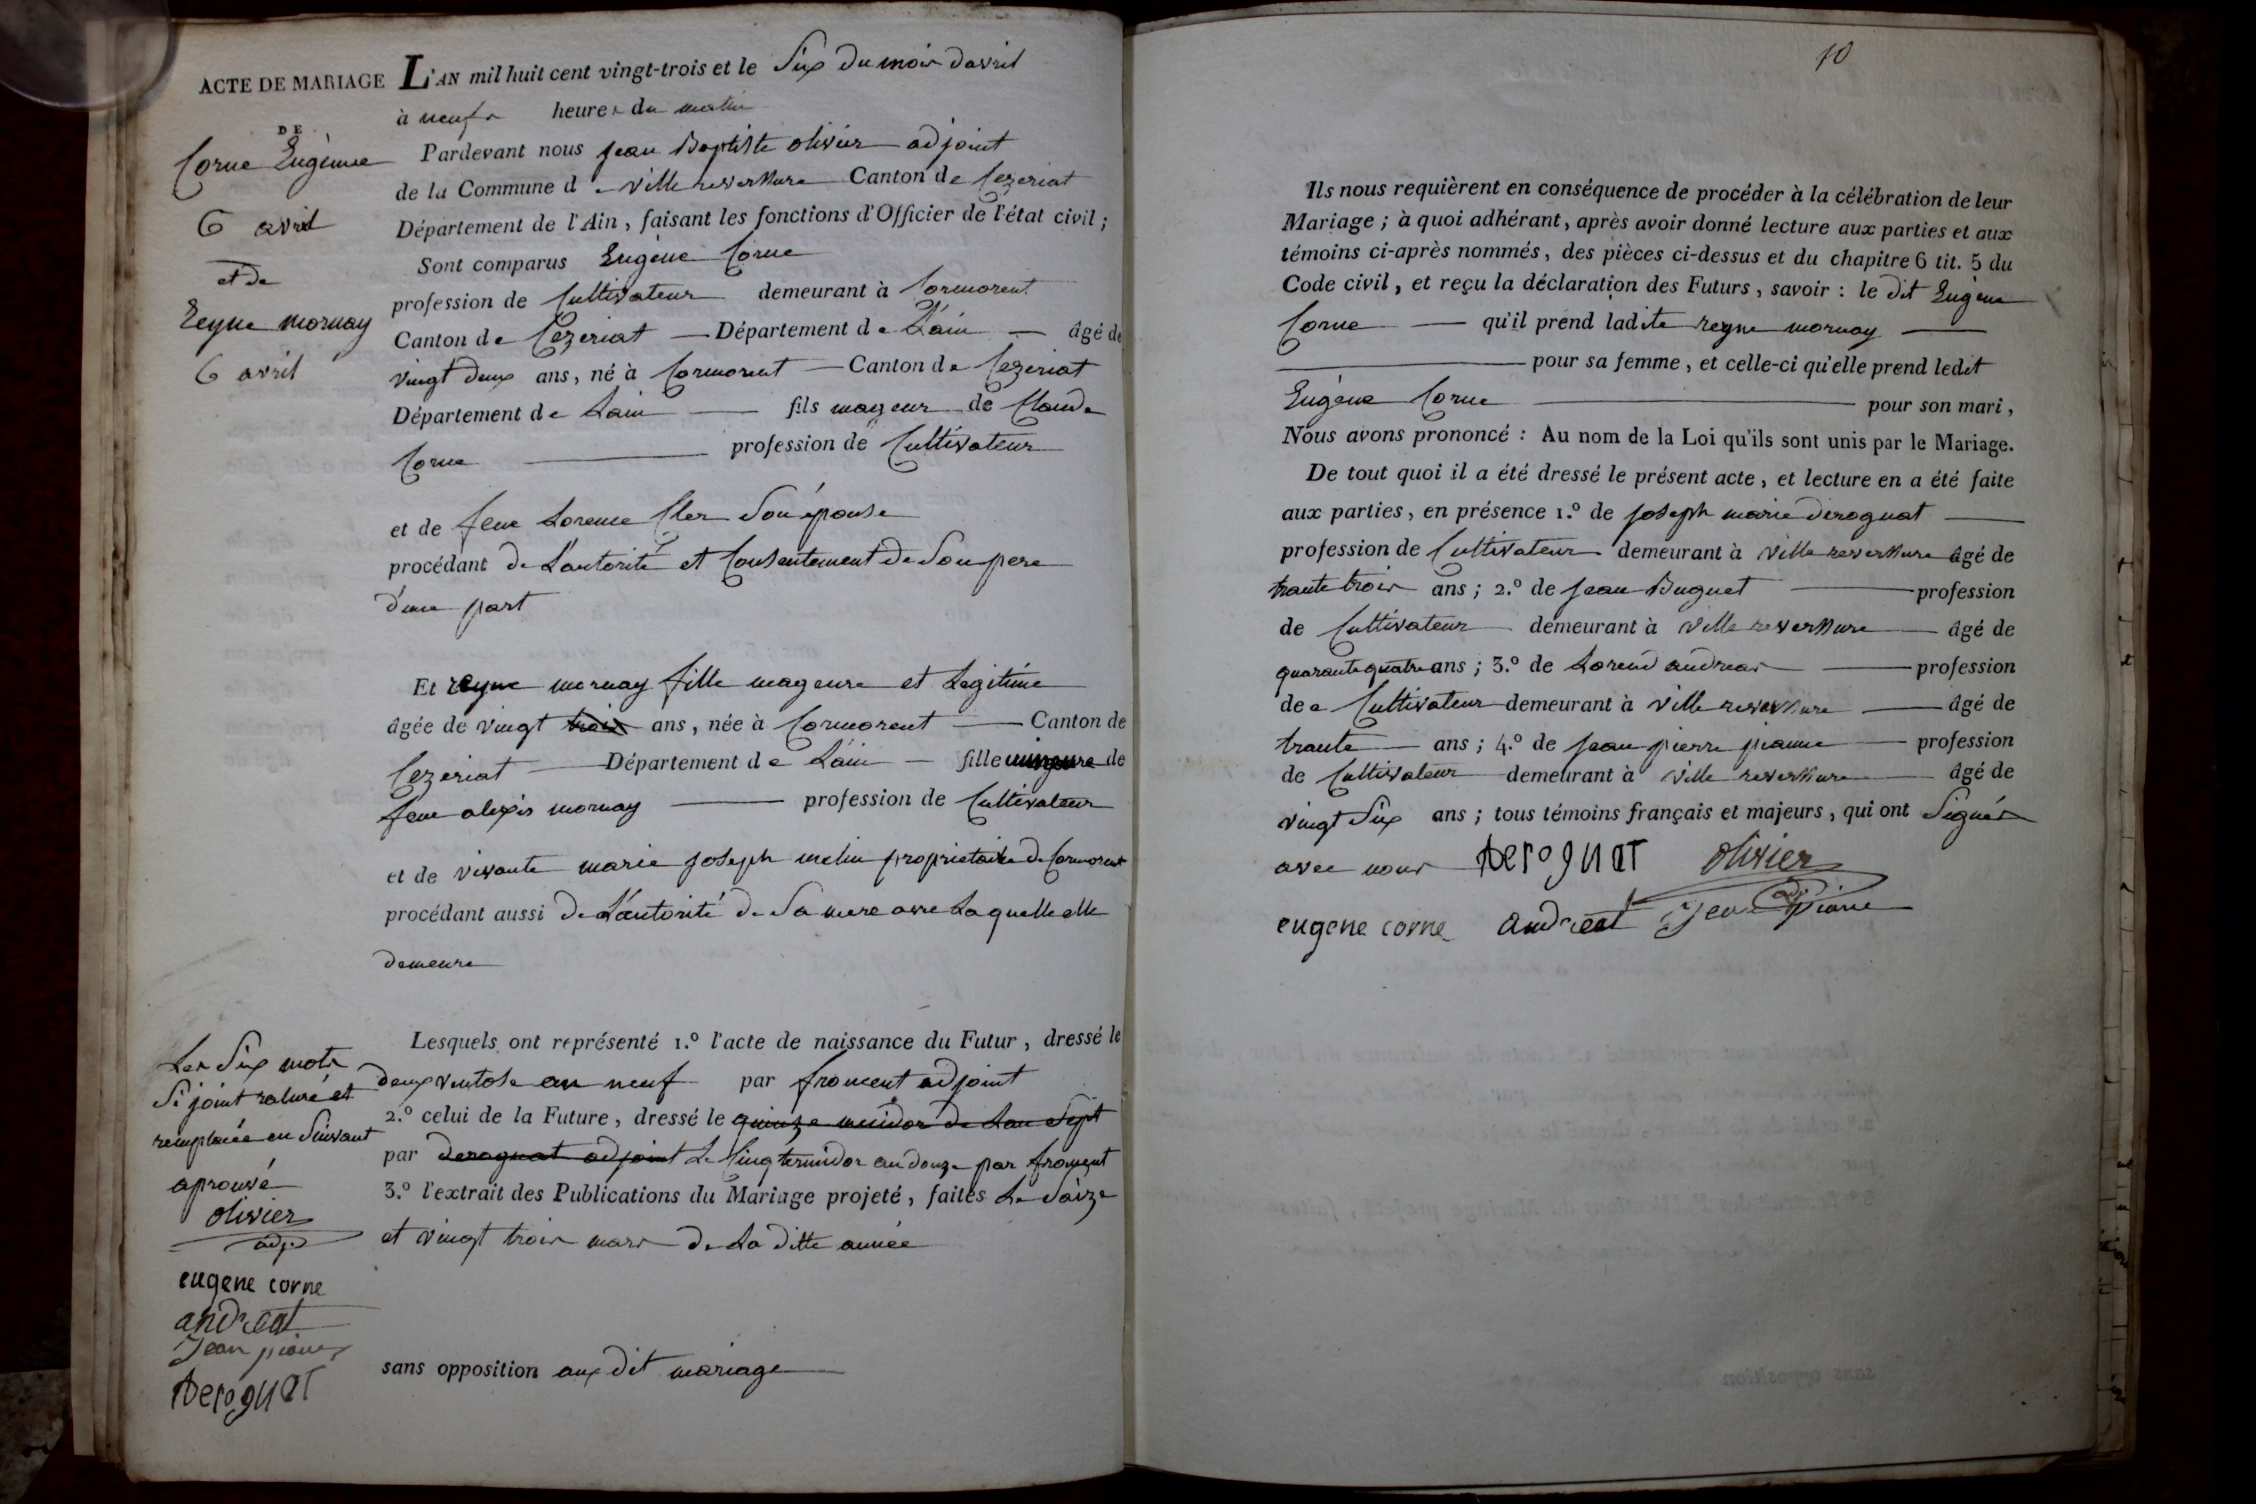 ACTE DE MARIAGE
DE
Corne Eugène
6 avril
et de
Reyne mornay
6 avril
L'AN mil huit cent vingt-trois et le Six du mois davril
à neufs heures du matin
Pardevant nous jean Baptiste olivier adjoint
de la Commune de ville reversure Canton de Cezeriat
Département de l'Ain, faisant les fonctions d'Officier de l'état civil;
Sont comparus Eugène Corne
profession de Cultivateur demeurant à Cormorent
Canton de Cézeriat Département de L'ain âgé de
vingt deux ans, né à Cormorent Canton de Cezeriat
Département de Lain fils mageur de Claude
Corne profession de Cultivateur
et de feue Lorence Cler Son épouse
procédant de L'autorité et Consentement de Son pere
d'une part
Et reyne mornay fille mageure et Legitime
âgée de vingt trois ans, née à Cormorent Canton de
Cezeriat Département de L'ain fille mineure de
feue alexis mornay profession de Cultivateur
et de vivante marie joseph melin propriétaire de Cormorent
procédant aussi de L'autorité de Sa mere avec Laquelle elle
demeure
Lesquels ont représenté 1.º l'acte de naissance du Futur, dressé le
deux ventose an neuf par froment adjoint
2.º celui de la Future, dressé le quinze messidor de Lan Sept
par derognat adjoint Le Cinq termidor an douze par froment
3.º l'extrait des Publications du Mariage projeté, faites Le Saize
et vingt trois mars de La ditte année
sans opposition aux dit mariage
Les Six mots
Si joint raturé et
remplacée en Suivant
aprouvé
olivier
adj.
eugene corne
andreat
Jean piane
Derognat
10
Ils nous requièrent en conséquence de procéder à la célébration de leur
Mariage; à quoi adhérant, après avoir donné lecture aux parties et aux
témoins ci-après nommés, des pièces ci-dessus et du chapitre 6 tit. 5 du
Code civil, et reçu la déclaration des Futurs, savoir: le dit Eugène
Corne qu'il prend ladite reyne mornay
pour sa femme, et celle-ci qu'elle prend ledit
Eugène Corne pour son mari,
Nous avons prononcé: Au nom de la Loi qu'ils sont unis par le Mariage.
De tout quoi il a été dressé le présent acte, et lecture en a été faite
aux parties, en présence 1.º de joseph marie derognat
profession de Cultivateur demeurant à ville reversure âgé de
trante trois ans; 2.º de jean Buguet profession
de Cultivateur demeurant à ville reversure âgé de
quarante quatre ans; 3.º de Lorend andreas profession
de Cultivateur demeurant à ville reversure âgé de
trante ans; 4.º de jean pierre pianne profession
de Cultivateur demeurant à ville reversure âgé de
vingt Six ans; tous témoins français et majeurs, qui ont Signés
avec nous Derognat olivier
adj.
eugene corne andreat Jean Piane